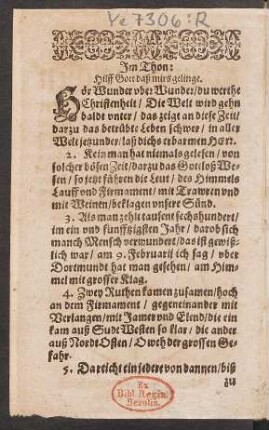 Ye 7306:R
Im Thon:
Hilff Gott daß mirs gelinge.
Hör Wunder vber Wunder/ du werthe
Christenheit/ Die Welt wird gehn
baldt vnter/ das zeigt an diese Zeit/
darzu das betrübte Leben schwer/ in aller
Welt jetzunder/ laß dichs erbarmen HErr.
2. Kein man hat niemals gelesen/ von
solcher bösen Zeit/ darzu das Gottloß We-
sen/ so jetzt führen die Leut/ des Himmels
Lauff vnd Firmament/ mit Trawren vnd
mit Weinen/ beklagen vnsere Sünd.
3. Als man zehlt tausent sechshundert/
im ein vnd funfftzigsten Jahr/ darob sich
manch Mensch verwundert/ das ist gewiß-
lich war/ am 9. Februarij ich sag/ vber
Dortmundt hat man gesehen/ am Him-
mel mit grosser Klag.
4. Zwey Ruthen kamen zusamen/ hoch
an dem Firmament/ gegeneinander mit
Verlangen/ mit Jamer vnd Elend/ die ein
kam auß Sudt Westen so klar/ die ander
auß Nordt Osten/ O weh der grossen Ge-
fahr.
5. Da reicht ein jedere von dannen/ biß
zu
Ex
Bibl. Regia
Berolin.